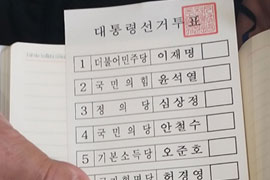 대통령선거투표
1 더불어민주당 이재명
2 국민의힘 윤석열
3 정의당 심상정
4 국민의당 안철수
5 기본소득당 오준호
국가혁명당 허경영